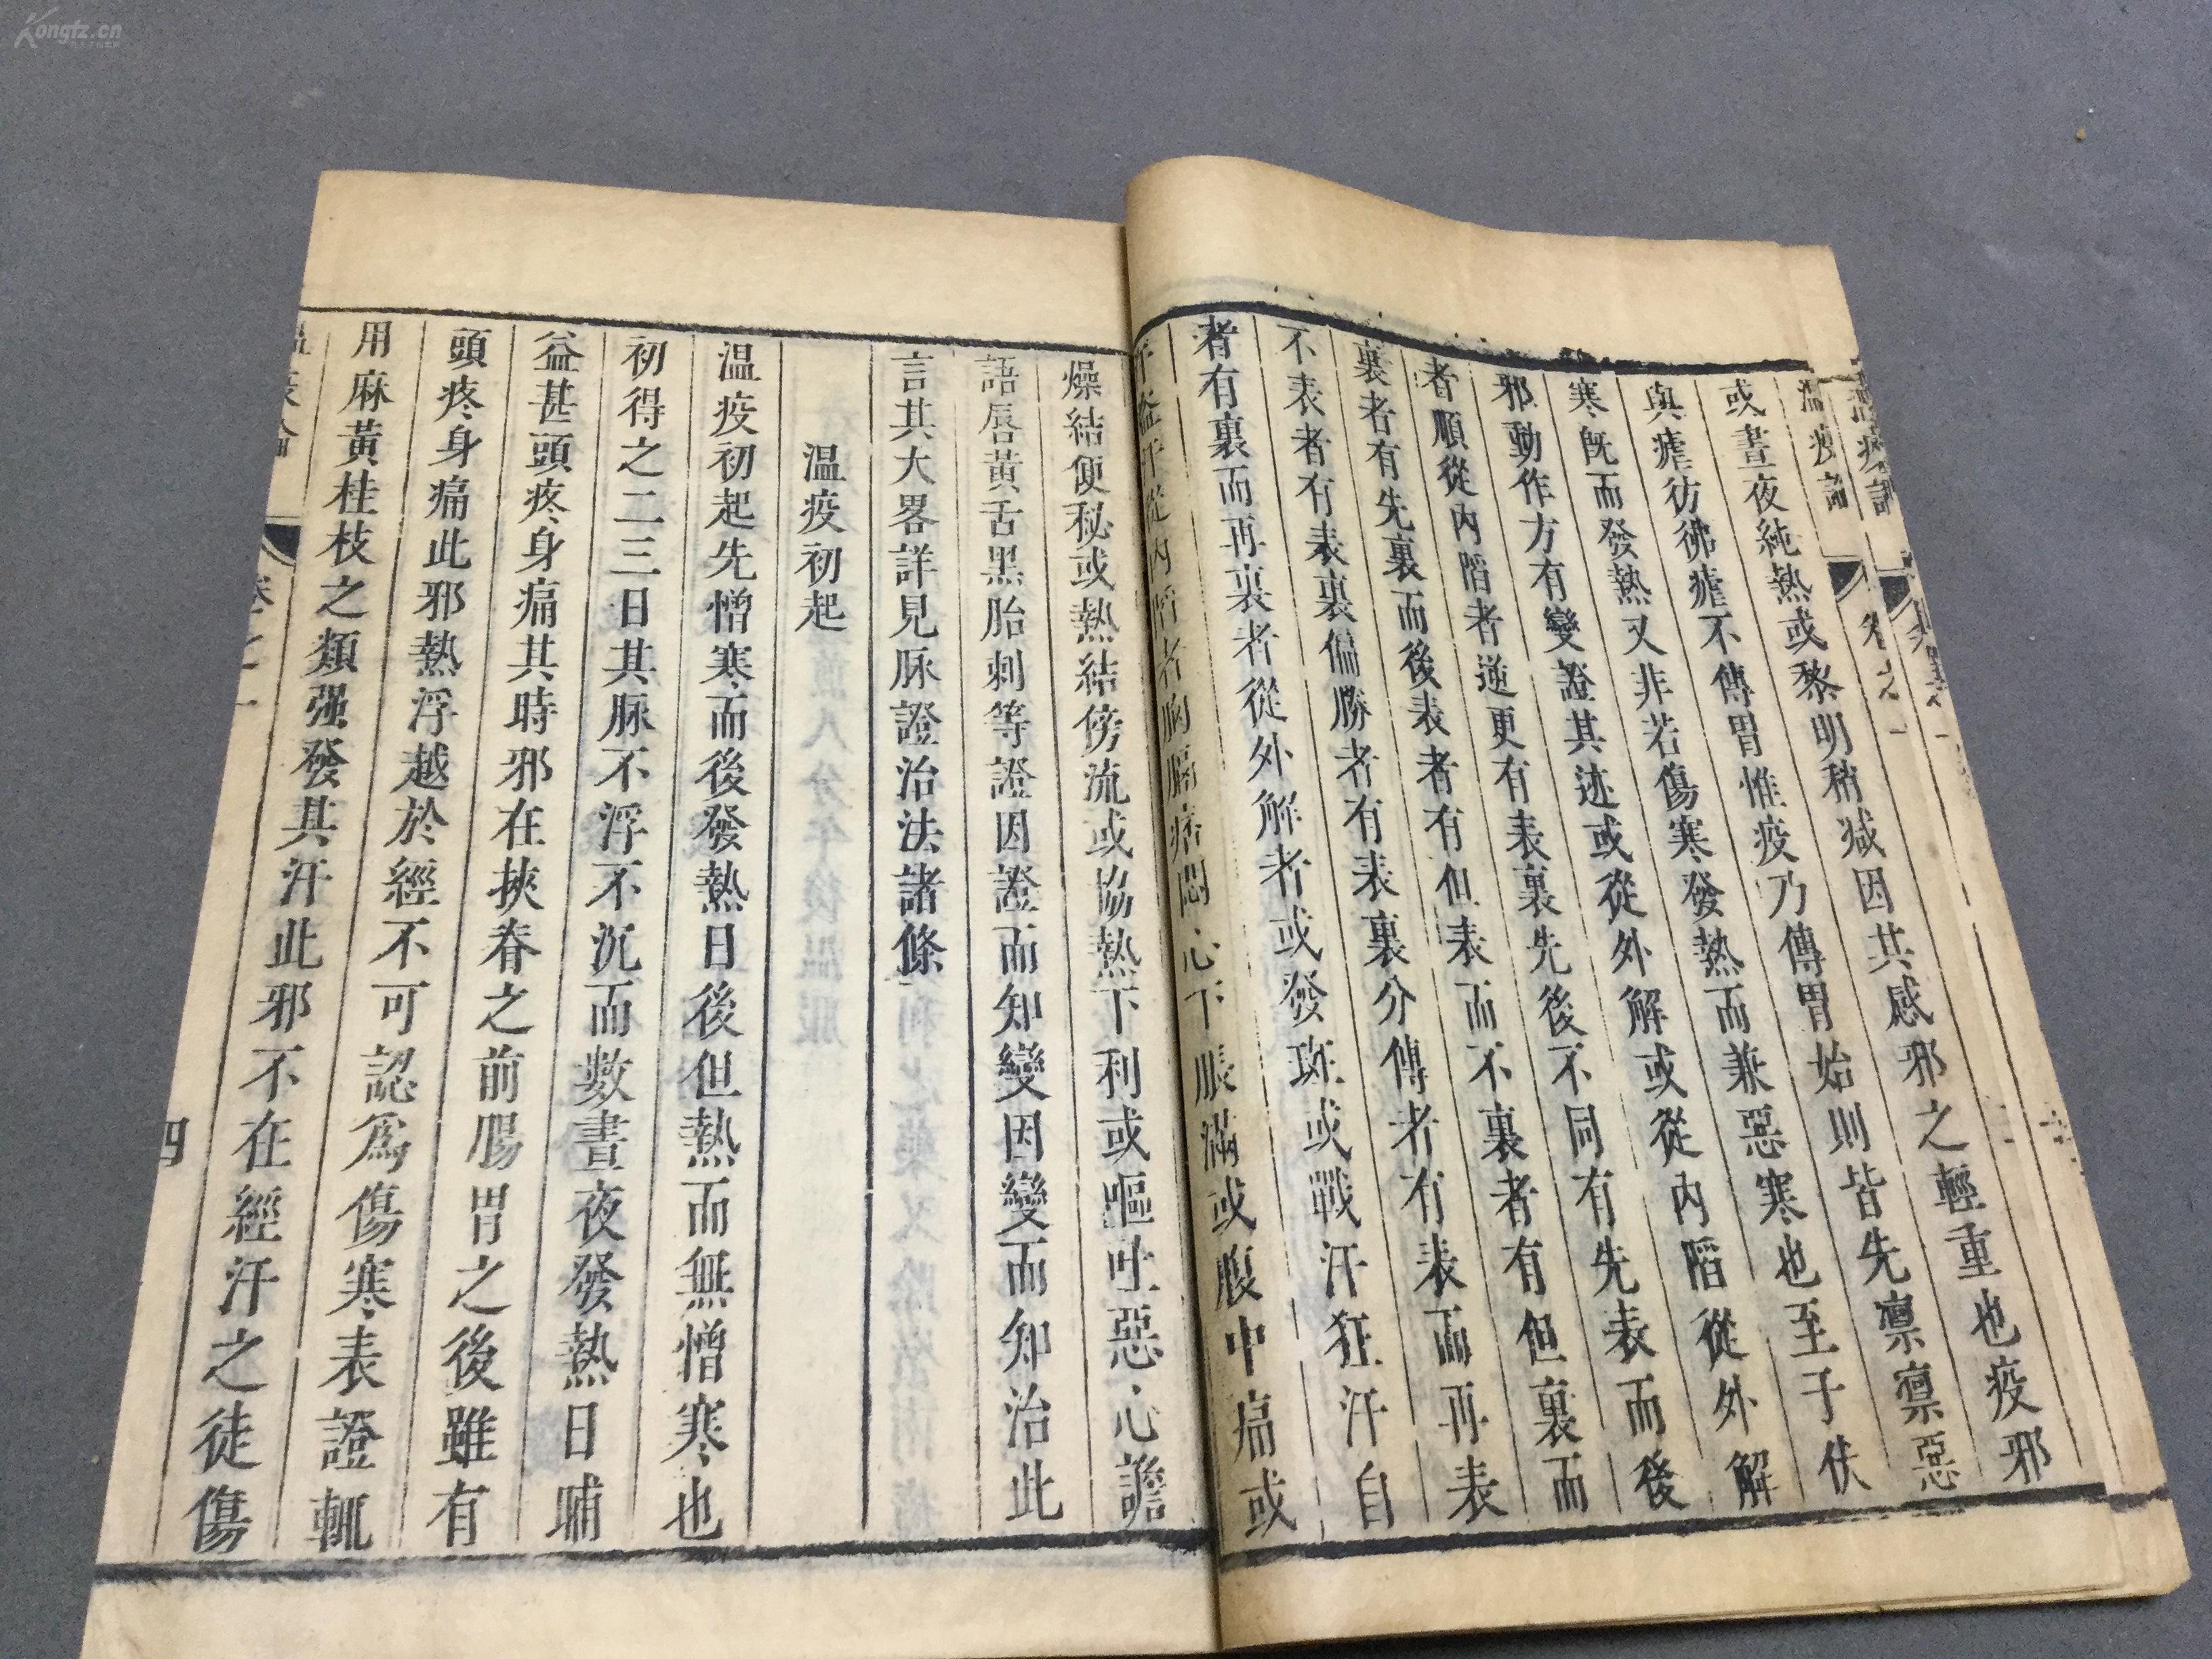 或晝夜純熱或黎明稍减因其感邪之輕重也疫邪
與瘧彷彿瘧不傳胃惟疫乃傳胃始則皆先凛凛惡
寒旣而發熱又非若傷寒發熱而兼惡寒也至于伏
邪動作方有變證其迹或從外解或從內陷從外解
者順從內陷者逆更有表裏先後不同有先表而後
裏者有先裏而後表者有但表而不裏者有但裏而
不表者有表裏偏勝者有表裏分傳者有表而再表
者有裏而再裏者從外解者或發斑或戰汗狂汗自
汗盜汗從內陷者胸膈痞悶心下脹滿或腹中痛或
燥結便秘或熱結傍流或協熱下利或嘔吐惡心譫
語唇黃舌黑胎刺等證因證而知變因變而知治此
言其大畧詳見脉證治法諸條
温疫初起
温疫初起先憎寒而後發熱日後但熱而無憎寒也
初得之二三日其脉不浮不沉而數晝夜發熱日晡
益甚頭疼身痛其時邪在挾脊之前腸胃之後雖有
頭疼身痛此邪熱浮越於經不可認爲傷寒表證輒
用麻黃桂枝之類强發其汗此邪不在經汗之徒傷
温疫論 卷之一
四
温疫論 卷之一
Kongfz.cn